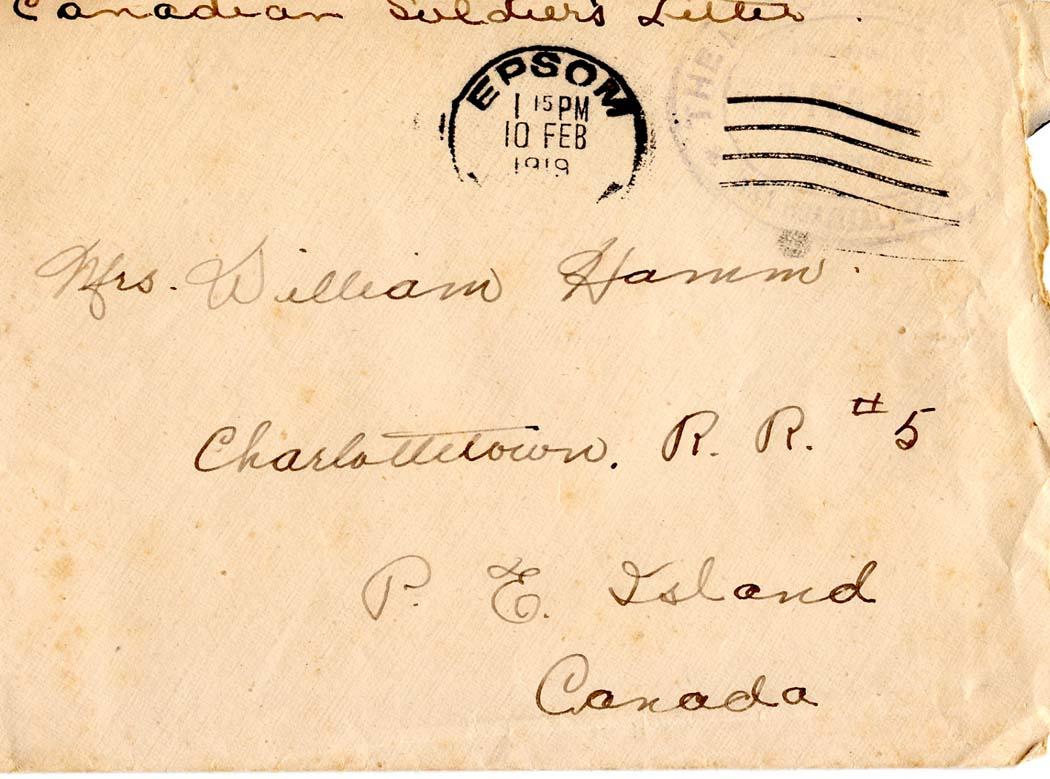 Canadian Soldier's Letter.
EPSOM
1 15 PM
10 FEB
1919
THE
Mrs. William Hamm.
Charlottetown. R. R. #5
P. E. Island
Canada